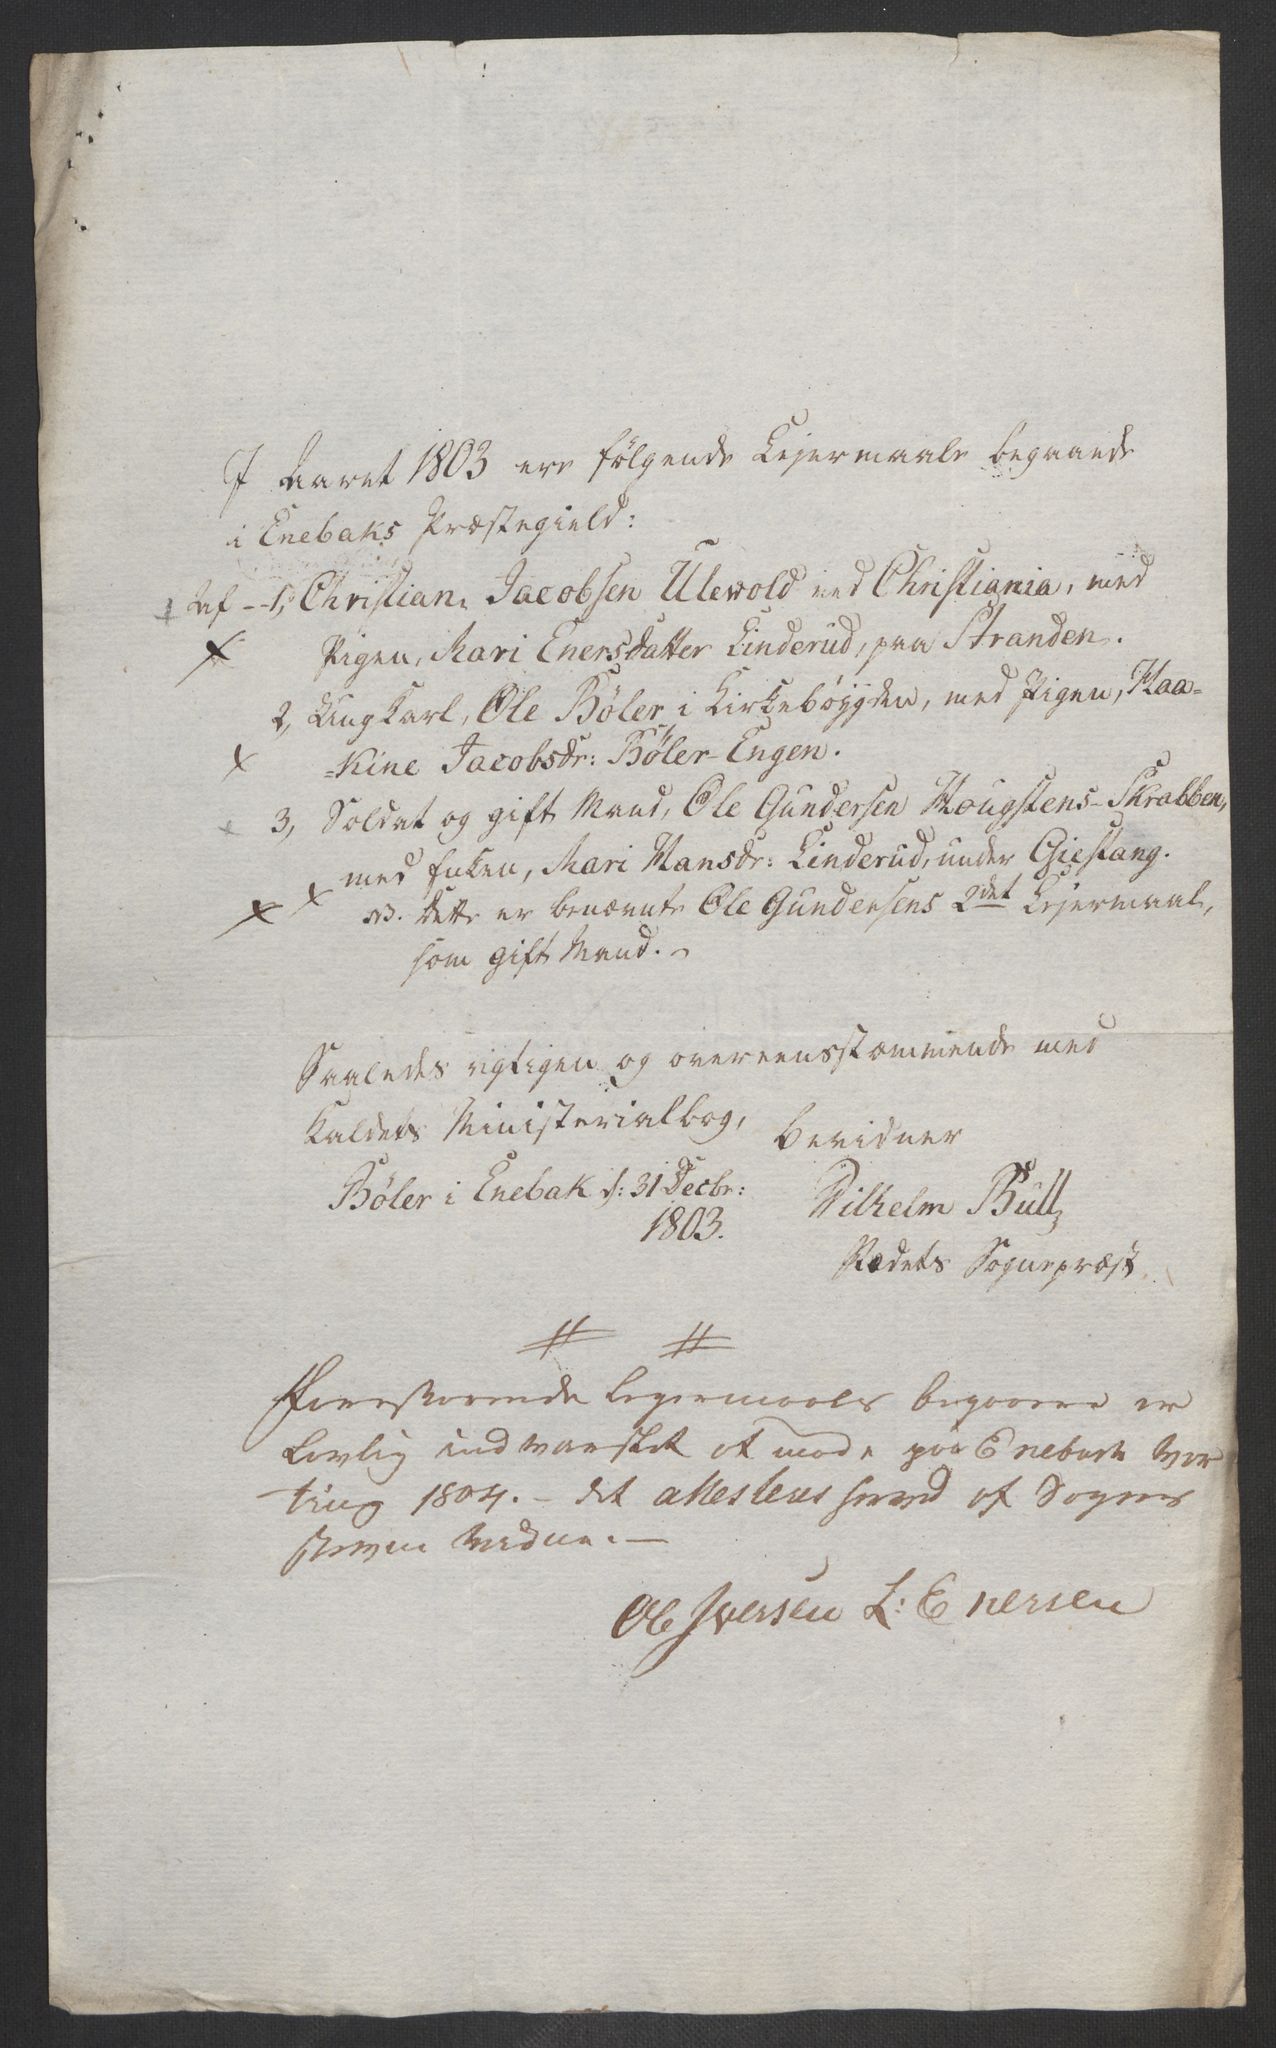 I Aaret 1803 ere følgende Lejermaale begaaede
i Enebaks Præstegield:
Af - 1, Christian Jacobsen Ulewold ved Christiania, med
Pigen, Mari Enersdatter Linderud, paa Stranden.
2, Ung Karl, Ole Bøler i Kirkebøygden, med Pigen, Haa=
=kine Jacobsdr: Bøler-Engen.
3, Soldat og gift Mand, Ole Gundersen Hougstens-Skrabben,
med Enken, Mari Hansdr: Linderud, under Gieslang.
NB. dette er benævnte Ole Gundersens 2det Lejermaal,
som gift Mand.
Saaledes rigtigen og overeensstemmende med
Kaldets Ministerialbog,
bevidner
Bøler i Enebak d: 31 Decbr:
1803.
Wilhelm Bull,
Stædets Sognepræst.
Forestaaende Legermaals begaaere er
Lovlig indvarslet at møde paa Enebach Vor
ting 1804. - det attesteres herved af Sognes
stevne Vidne. -
Ole Iversen L: Enersen